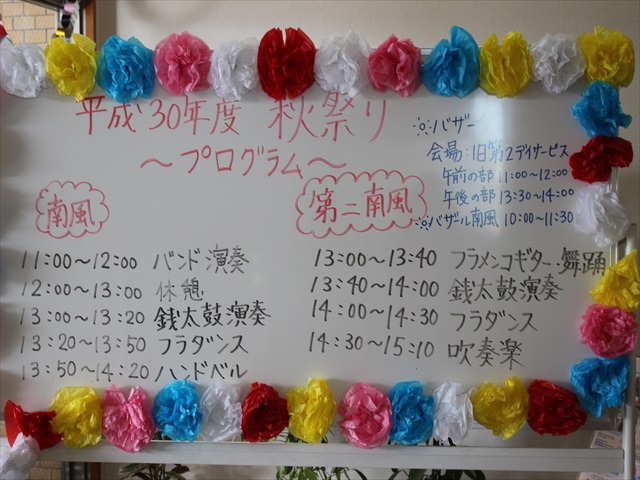 平成30年度 秋祭り
～プログラム～
バザー
会場:旧第2デイサービス
午前の部 11:00～12:00
午後の部 13:30～14:00
バザール南風 10:00～11:30
南風
11:00～12:00 バンド演奏
12:00～13:00 休憩
13:00～13:20 銭太鼓演奏
13:20～13:50 フラダンス
13:50～14:20 ハンドベル
第二南風
13:00～13:40 フラメンコギター・舞踊
13:40～14:00 銭太鼓演奏
14:00～14:30 フラダンス
14:30～15:10 吹奏楽